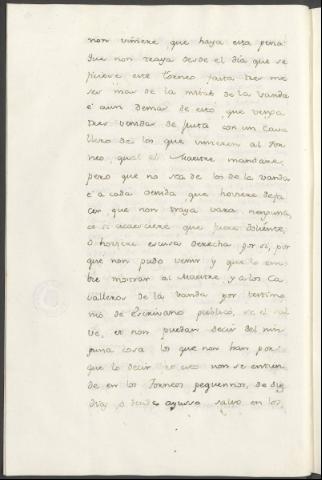 non viniere que haya esta pena
que non traya desde el dia que se
ficiere este Torneo fasta tres me
ses mas de la mitad de la vanda
e aun demas de esto que venga
tres venidas de justa con un Cava
llero de los que vinieren al Tor
neo, qual el Maestre mandare,
pero que no sea de los de la vanda
e a cada venida que hoviere defa
cer que non traya vara ninguna,
e si acaeciere que fuere doliente,
ó hoviere escusa derecha por si, por
que non pudo venir y que lo em
bie mostrar al Maestre, y a los Ca
valleros de la vanda por testimo
nio de escrivano publico, sea el sal
vo, et non puedan decir del nin
guna cosa los que non han por
que lo decir et esto non se entien
de en los Torneos pequennos, de diez
dias, o dende ayusso salvo en los